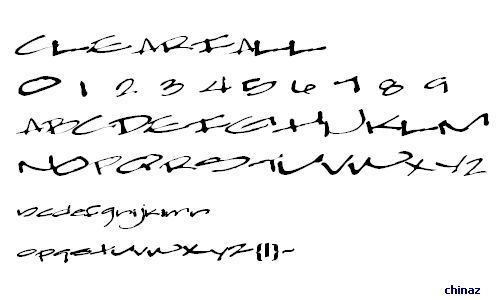 CLEARFALL
0 1 2 3 4 5 6 7 8 9
ABCDEFGHIJKLM
NOPQRSTUVWXYZ
abcdefghijklmn
opqrstuvwxyz{|}~
chinaz